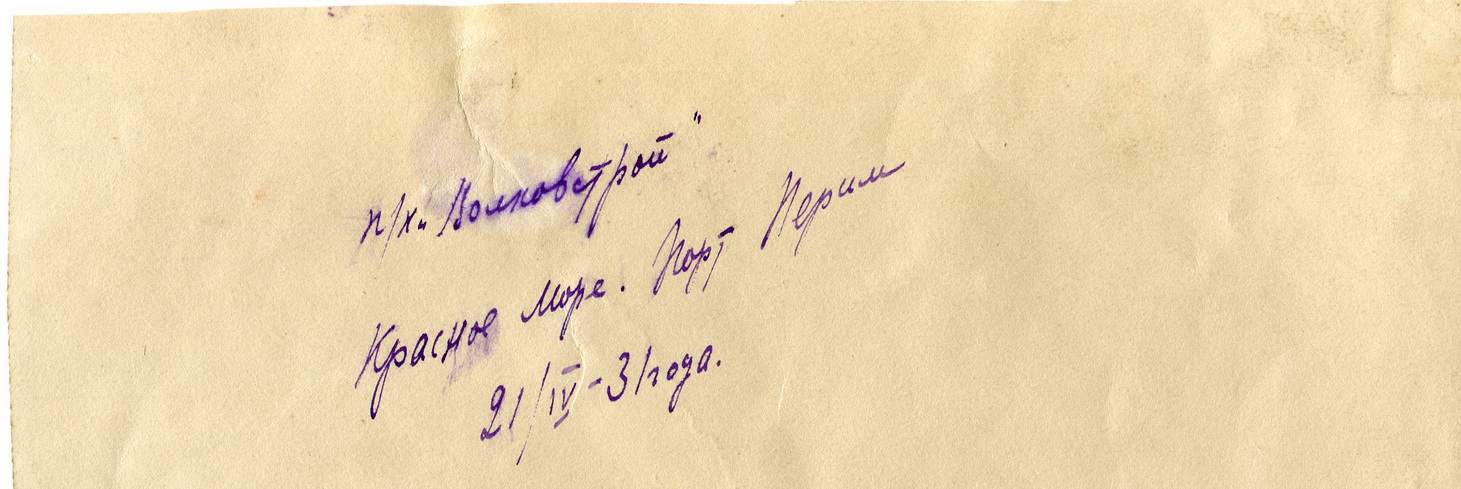 п/х „Волховстрой"
Красное море. Порт Перим
21/IV-31 года.